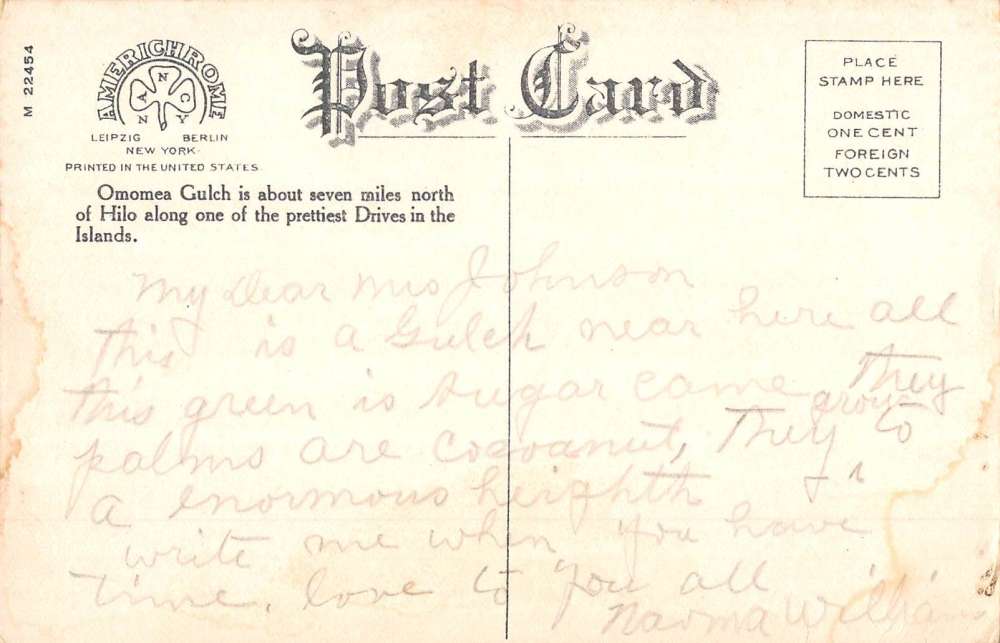 M 22454
AMERICHROME
NANCY
LEIPZIG BERLIN
NEW YORK
PRINTED IN THE UNITED STATES
Post Card
PLACE
STAMP HERE
DOMESTIC
ONE CENT
FOREIGN
TWO CENTS
Omomea Gulch is about seven miles north
of Hilo along one of the prettiest Drives in the
Islands.
My Dear Mrs Johnson
this is a Gulch near here all
this green is sugar came They
palms are cocoanut, They grow to
a enormous heighth
write me when you have
time. love to you all
Naoma Williams